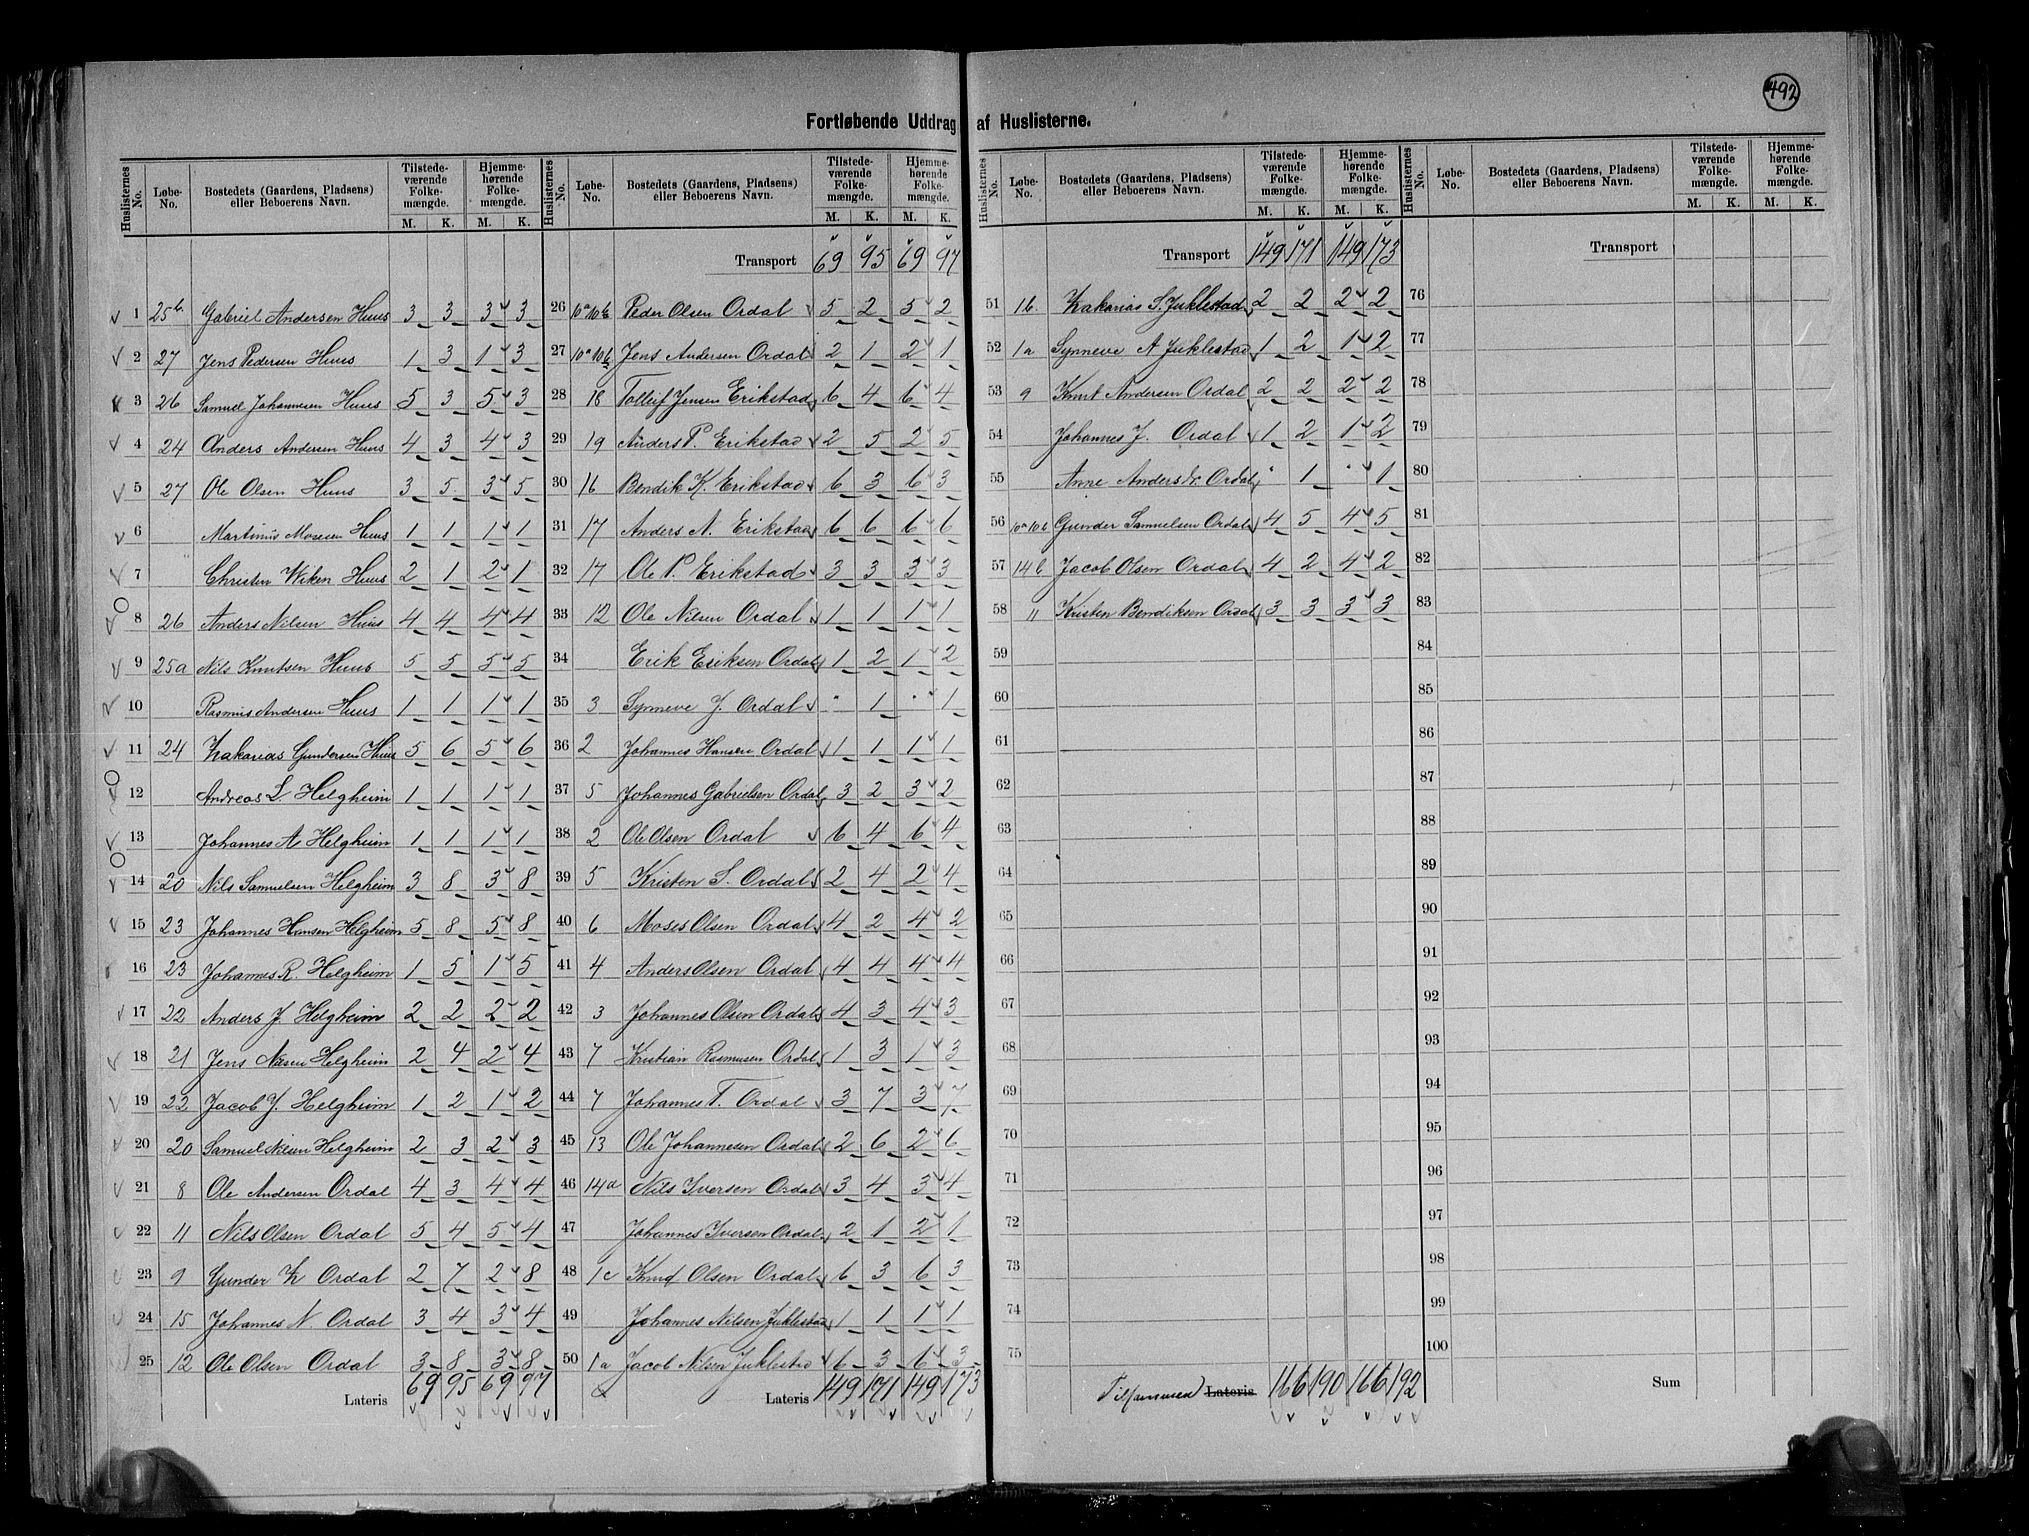 492
Fortløbende Uddrag af Huslisterne.
Huslisternes No. Løbe-No. Bostedets (Gaardens, Pladsens) eller Beboerens Navn. Tilstedeværende Folkemængde. M. K. Hjemmehørende Folkemængde. M. K.
1 25b Gabriel Andersen Huus 3 3 3 3
2 27 Jens Pedersen Huus 1 3 1 3
3 26 Samuel Johannesen Huus 5 3 5 3
4 24 Anders Andersen Huus 4 3 4 3
5 27 Ole Olsen Huus 3 5 3 5
6 Martinus Mosesen Huus 1 1 1 1
7 Christen Wiken Huus 2 1 2 1
8 26 Anders Nilsen Huus 4 4 4 4
9 25a Nils Knutsen Huus 5 5 5 5
10 Rasmus Andersen Huus 1 1 1 1
11 24 Zakarias Gundersen Huus 5 6 5 6
12 Andreas L. Helgheim 1 1 1 1
13 Johannes A Helgheim 1 1 1 1
14 20 Nils Samuelsen Helgheim 3 8 3 8
15 23 Johannes Hansen Helgheim 5 8 5 8
16 23 Johannes R. Helgheim 1 5 1 5
17 22 Anders J. Helgheim 2 2 2 2
18 21 Jens Helgheim 2 4 2 4
19 22 Jacob J. Helgheim 1 2 1 2
20 20 Samuel Nilsen Helgheim 2 3 2 3
21 8 Ole Andersen Ordal 4 3 4 4
22 11 Nils Olsen Ordal 5 4 5 4
23 9 Gunder Z Ordal 2 7 2 8
24 15 Johannes N. Ordal 3 4 3 4
25 12 Ole Olsen Ordal 3 8 3 8
Lateris 69 95 69 97
Huslisternes No. Løbe-No. Bostedets (Gaardens, Pladsens) eller Beboerens Navn. Tilstedeværende Folkemængde. M. K. Hjemmehørende Folkemængde. M. K.
Transport 69 95 69 97
26 10a10b Peder Olsen Ordal 5 2 5 2
27 10a10b Jens Andersen Ordal 2 1 2 1
28 18 Tollef Jensen Erikstad 6 4 6 4
29 19 Anders P. Erikstad 2 5 2 5
30 16 Bendik K. Erikstad 6 3 6 3
31 17 Anders N. Erikstad 6 6 6 6
32 17 Ole P. Erikstad 3 3 3 3
33 12 Ole Nilsen Ordal 1 1 1 1
34 Erik Eriksen Ordal 1 2 1 2
35 3 Synneve J. Ordal " 1 " 1
36 2 Johannes Hansen Ordal 1 1 1 1
37 5 Johannes Gabrielsen Ordal 3 2 3 2
38 2 Ole Olsen Ordal 6 4 6 4
39 5 Kristen S. Ordal 2 4 2 4
40 6 Moses Olsen Ordal 4 2 4 2
41 4 Anders Olsen Ordal 4 4 4 4
42 3 Johannes Olsen Ordal 4 3 4 3
43 7 Kristian Rasmusen Ordal 1 3 1 3
44 7 Johannes T. Ordal 3 7 3 7
45 13 Ole Johannesen Ordal 2 6 2 6
46 14a Nils Iversen Ordal 3 4 3 4
47 Johannes Iversen Ordal 2 1 2 1
48 1c Knut Olsen Ordal 6 3 6 3
49 Johannes Nilsen Juklestad 1 1 1 1
50 1a Jacob Nilsen Juklestad 6 3 6 3
Lateris 149 171 149 173
Huslisternes No. Løbe-No. Bostedets (Gaardens, Pladsens) eller Beboerens Navn. Tilstedeværende Folkemængde. M. K. Hjemmehørende Folkemængde. M. K.
Transport 149 171 149 173
51 1b. Zakarias S. Juklestad 2 2 2 2
52 1a Synneve A Juklestad 1 2 1 2
53 9 Knut Andersen Ordal 2 2 2 2
54 Johannes J. Ordal 1 2 1 2
55 Anne Andersdr. Ordal " 1 " 1
56 10a10b Gunder Samuelsen Ordal 4 5 4 5
57 14b Jacob Olsen Ordal 4 2 4 2
58 11 Kristen Bendiksen Ordal 3 3 3 3
59
60
61
62
63
64
65
66
67
68
69
70
71
72
73
74
75
Tilsammen Lateris 166 190 166 192
Huslisternes No. Løbe-No. Bostedets (Gaardens, Pladsens) eller Beboerens Navn. Tilstedeværende Folkemængde. M. K. Hjemmehørende Folkemængde. M. K.
Transport
76
77
78
79
80
81
82
83
84
85
86
87
88
89
90
91
92
93
94
95
96
97
98
99
100
Sum